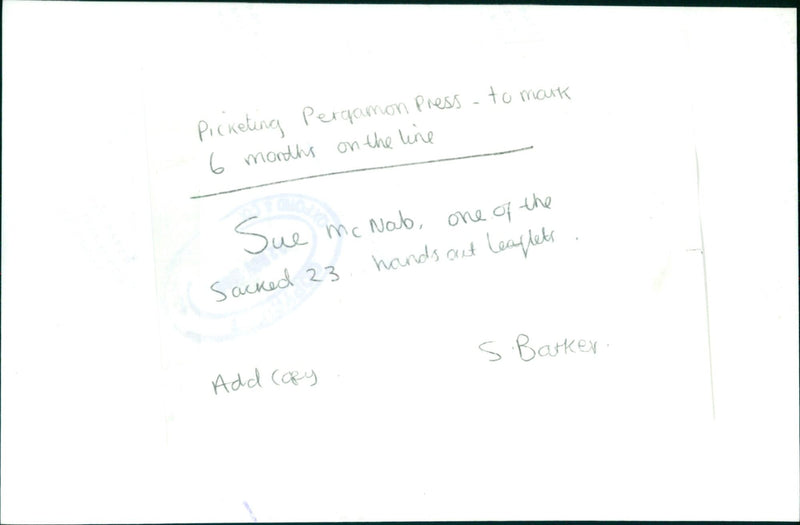 Picketing Pergamon Press - to mark
6 months on the line
Sue McNab, one of the
Sacked 23 hands out leaflets.
S. Barker.
Add copy